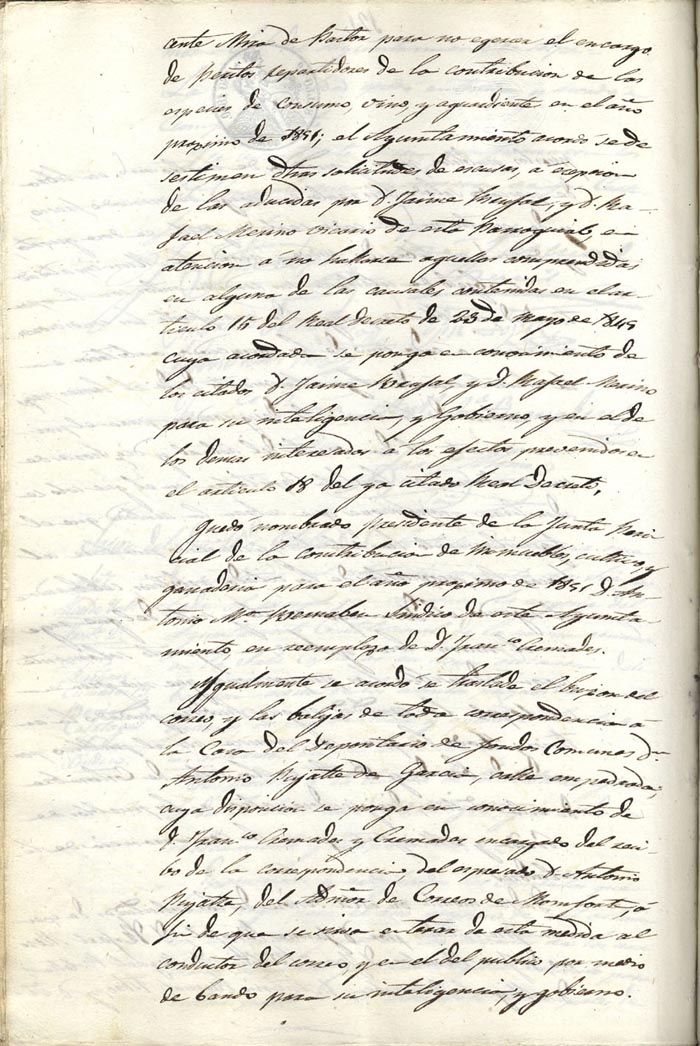 ante Mira de Pastor para no egercer el encargo
de peritos repartidores de la contribucion de las
especies de consumo, vino, y aguardiente en el año
proximo de 1851; el Ayuntamiento acordó se de
sestimen dhas solicitudes de escusas, a ecepcion
de las aducidas por D. Jaime y D. Ra-
fael Merino vicario de esta Parroquia, en
atencion a no hallarse aquellos comprendidas
en alguna de las causales contenidas en el ar-
ticulo 15 del Real Decreto de 23 de Mayo de 1845
cuya acordada se ponga en conocimiento de
los citados D. Jaime y D. Rafael Merino
para su inteligencia, y Gobierno, y en el de
los demas interesados a los efectos prevenidos en
el articulo 18 del ya citado Real Decreto,
Quedó nombrado presidente de la Junta Peri-
cial de la contribucion de Inmuebles, cultivo, y
ganaderia para el año proximo de 1851 D. An-
tonio Mª Bernabeu Sindico de este Ayunta-
miento en reemplazo de D. Franco Cremades.
Ygualmente se acordó se traslade el buzon del
correo, y las balijas de toda correspondencia á
la Casa del Depositario de fondos Comunes Dn
Antonio de Garcia, calle empedrada,
cuya disposicion se ponga en conocimiento de
D. Franco Cremades y Cremades encargado del reci-
bo de la correspondencia, del espresado D. Antonio
del Admor de Correos de Monforte, á
fin de que se sirva enterar de esta medida al
conductor del correo, y en el del publico por medio
de bando para su inteligencia, y gobierno.